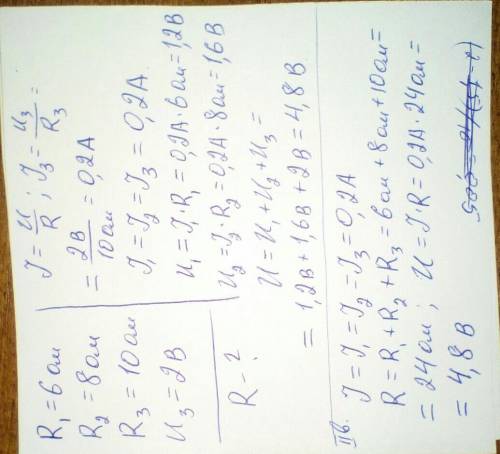 R₁ = 6 ом
R₂ = 8 ом
R₃ = 10 ом
U₃ = 2 В
R - ?
J = U/R ; J₃ = U₃/R₃ =
= 2В/10ом = 0,2 А
J₁ = J₂ = J₃ = 0,2 А
U₁ = J·R₁ = 0,2А·6ом = 1,2В
U₂ = J·R₂ = 0,2А·8ом = 1,6В
U = U₁ + U₂ + U₃ =
= 1,2В + 1,6В + 2В = 4,8 В
IIв. J = J₁ = J₂ = J₃ = 0,2 А
R = R₁ + R₂ + R₃ = 6ом + 8ом + 10ом =
= 24 ом ; U = J·R = 0,2А·24ом =
= 4,8 В